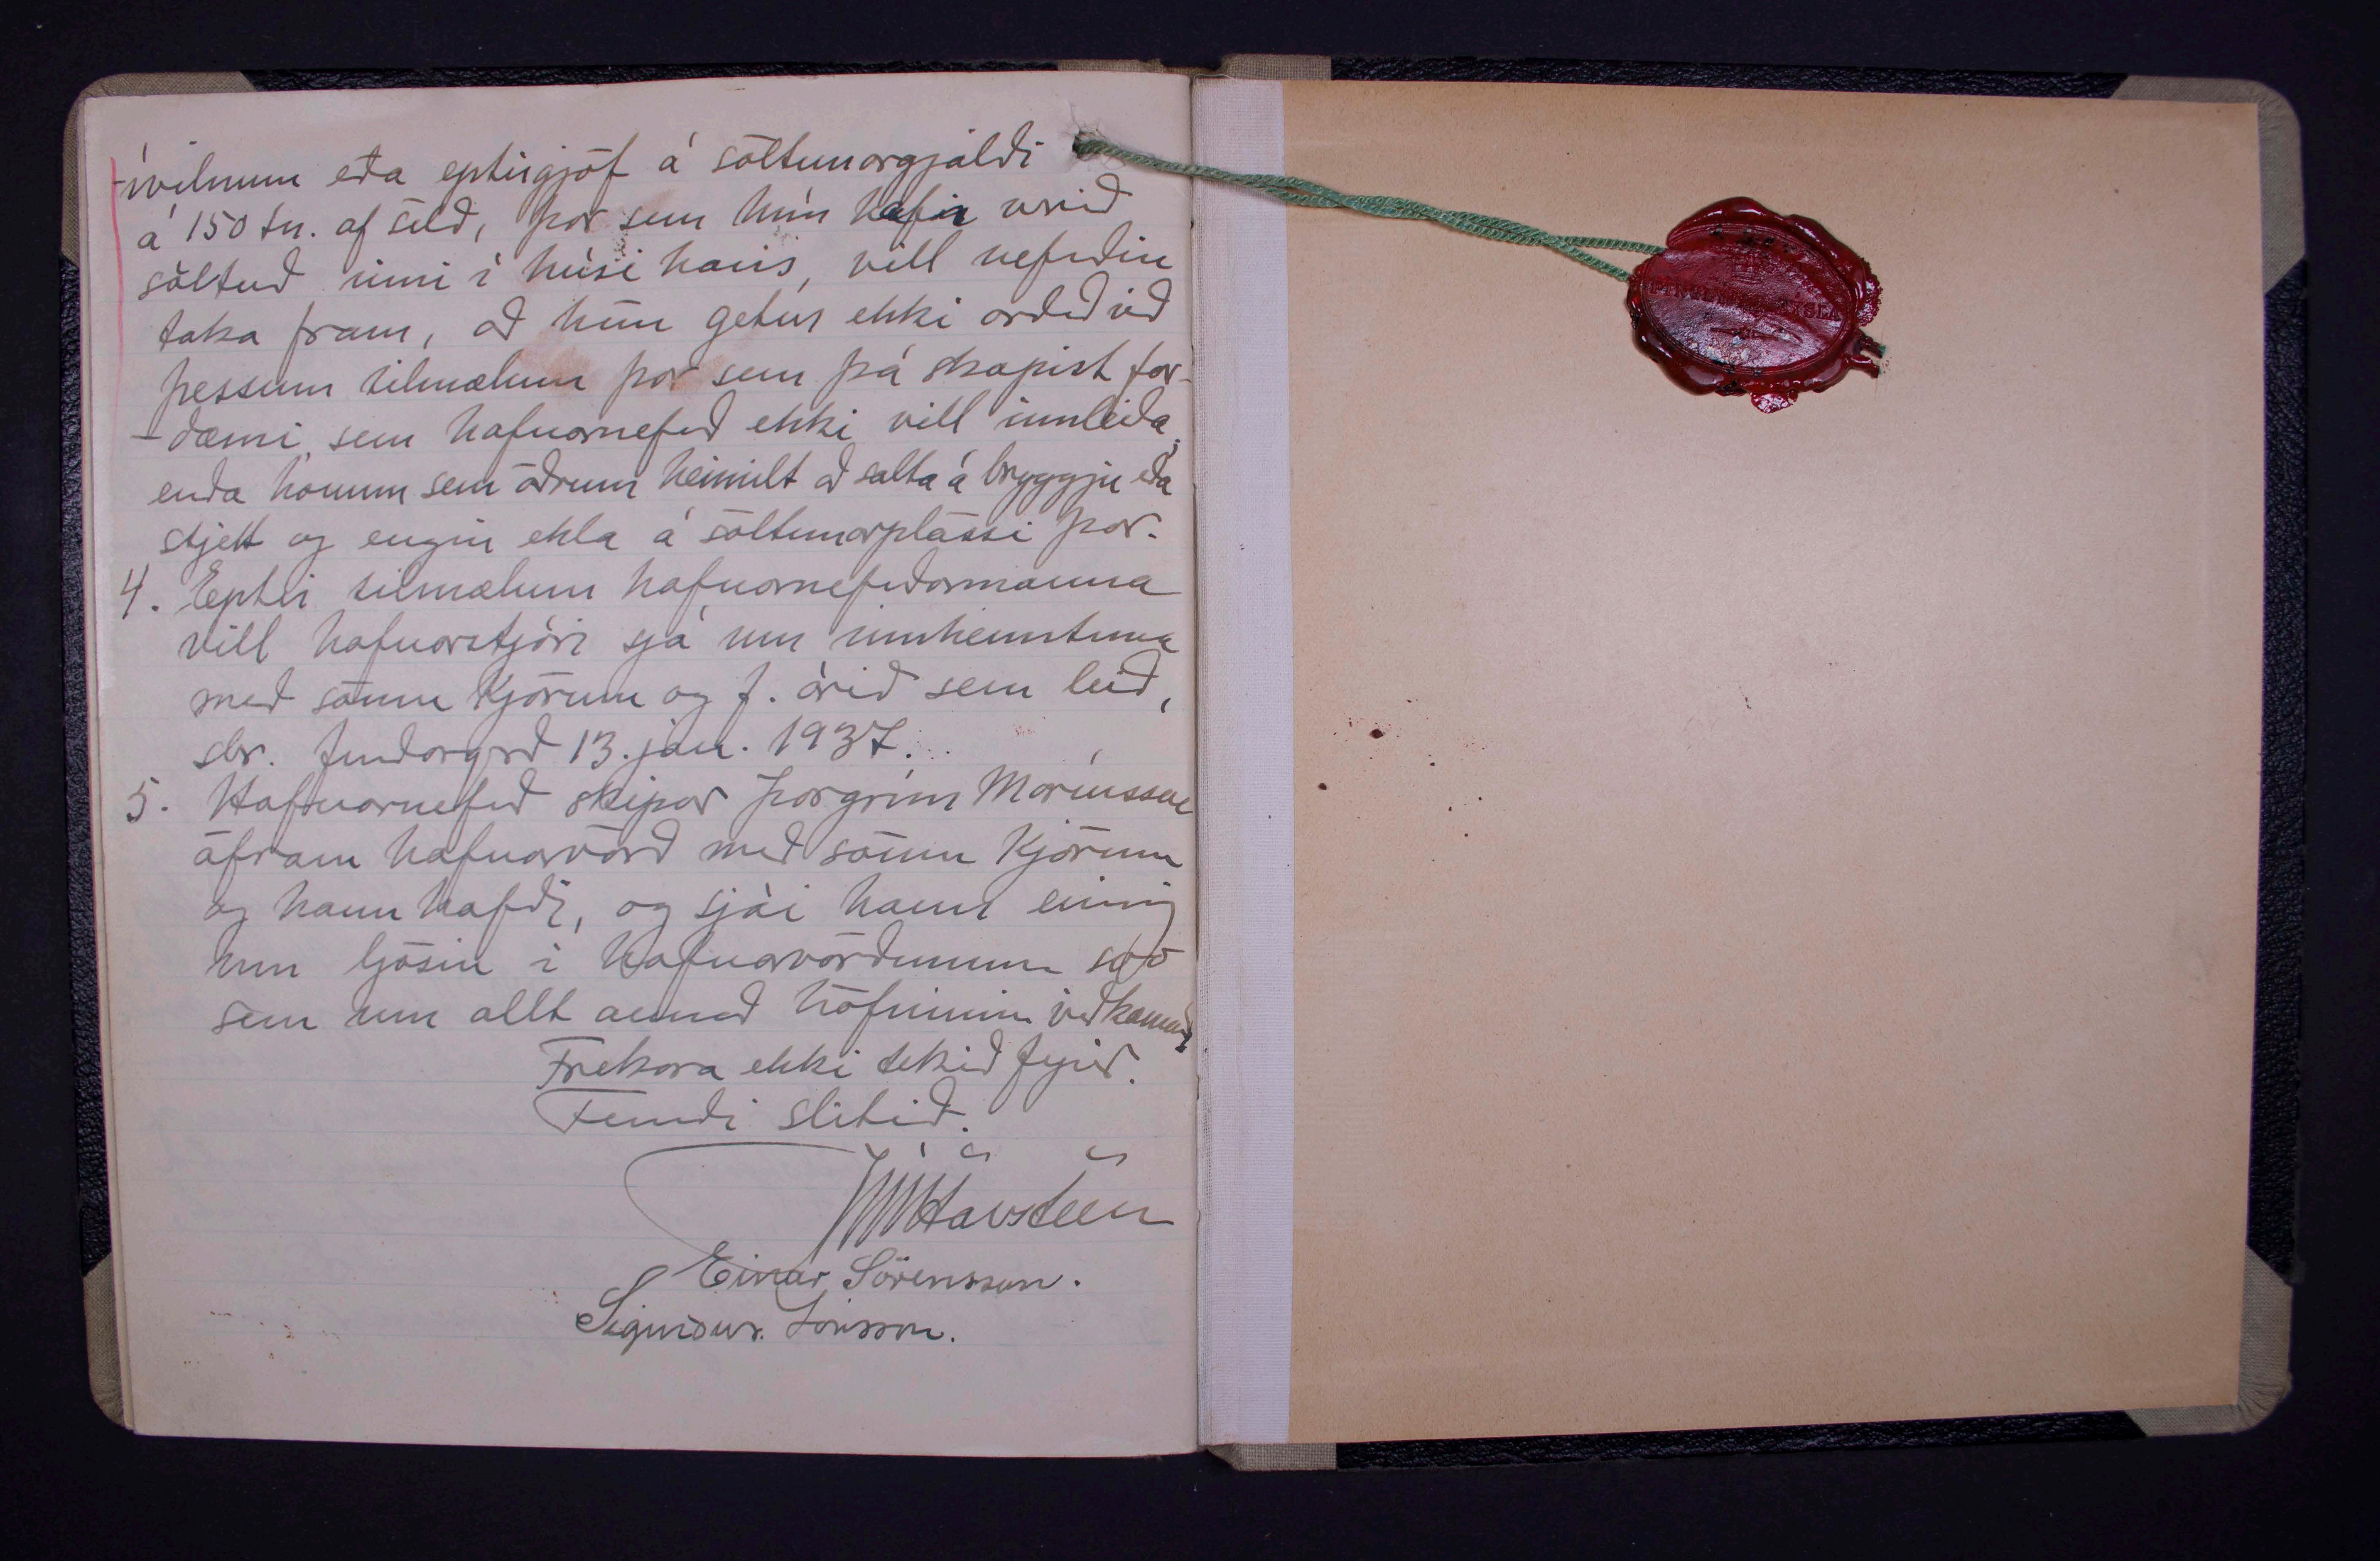 -ívilnum eða eptirgjöf á söltunargjaldi
á 150 tn. af síld, þar sem hún hafir verið
söltuð inni í húsi hans, vill nefndin
taka fram, að hún getur ekki orðið við
þessum tilmælum þar sem þá skapist for-
-dæmi, sem hafnarnefnd ekki vill innleiða,
enda honum sem öðrum heimilt að salta á bryggju eða
stjett og engin ekla á söltunarplássi þar.
4. Eptir tilmælum hafnarnefndarmanna
vill hafnarstjóri sjá um innheimtuna
með sömu kjörum og f. árið sem leið,
sbr. fundargrð 13. jan. 1937.
5. Hafnarnefnd skipar Þorgrím Maríusson
áfram hafnarvörð með sömu kjörum
og hann hafði, og sjái hann einnig
um ljósin í hafnarvörðunum svo
sem um allt annað höfninni viðkomandi
Frekara ekki tekið fyrir.
Fundi slitið.
JHavsteen
Einar Sörensson.
Sigurður Jónsson.
ÞINGEYJARSÝSLA